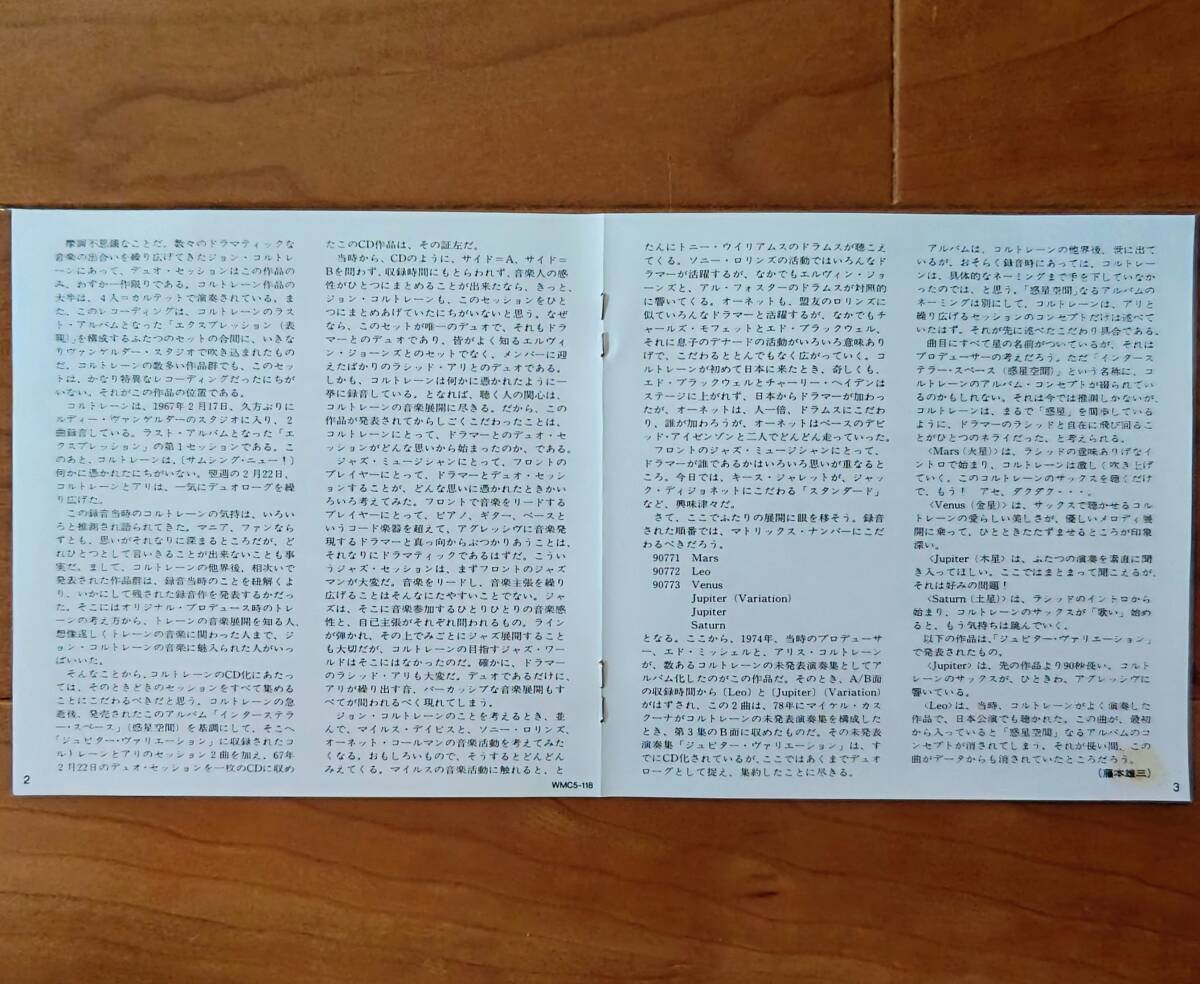 摩訶不思議なことだ。数々のドラマティックな
音楽の出合いを繰り広げてきたジョン・コルトレ
ーンにあって、デュオ・セッションはこの作品の
み、わずか一作限りである。コルトレーン作品の
大半は、4人=カルテットで演奏されている。ま
た、このレコーディングは、コルトレーンのラス
ト・アルバムとなった「エクスプレッション(表
現)」を構成するふたつのセットの合間に、いきな
りヴァンゲルダー・スタジオで吹き込まれたもの
だ。コルトレーンの数多い作品群でも、このセッ
トは、かなり特異なレコーディングだったにちが
いない。それがこの作品の位置である。
コルトレーンは、1967年2月17日、久方ぶりに
ルディー・ヴァンゲルダーのスタジオに入り、2
曲録音している。ラスト・アルバムとなった「エ
クスプレッション」の第1セッションである。こ
のあと、コルトレーンは、〔サムシング・ニュー!〕
何かに憑かれたにちがいない。翌週の2月22日、
コルトレーンとアリは、一気にデュオローグを繰
り広げた。
この録音当時のコルトレーンの気持は、いろい
ろと推測され語られてきた。マニア、ファンなら
ずとも、思いがそれなりに深まるところだが、ど
れひとつとして言いきることが出来ないことも事
実だ。まして、コルトレーンの他界後、相次いで
発表された作品群は、録音当時のことを紐解くよ
り、いかにして残された録音作を発表するかだっ
た。そこにはオリジナル・プロデュース時のトレ
ーンの考え方から、トレーンの音楽展開を知る人、
想像逞しくトレーンの音楽に関わった人まで、ジ
ョン・コルトレーンの音楽に魅入られた人がいっ
ぱいいた。
そんなことから、コルトレーンのCD化にあたっ
ては、そのときどきのセッションをすべて集める
ことにこだわるべきだと思う。コルトレーンの急
逝後、発売されたこのアルバム「インターステラ
ー・スペース」(惑星空間)を基調にして、そこへ
「ジュピター・ヴァリエーション」に収録されたコ
ルトレーンとアリのセッション2曲を加え、67年
2月22日のデュオ・セッションを一枚のCDに収め
2
たこのCD作品は、その証左だ。
当時から、CDのように、サイド=A、サイド=
Bを問わず、収録時間にもとらわれず、音楽人の感
性がひとつにまとめることが出来たなら、きっと、
ジョン・コルトレーンも、このセッションをひと
つにまとめあげていたにちがいないと思う。なぜ
なら、このセットが唯一のデュオで、それもドラ
マーとのデュオであり、皆がよく知るエルヴィ
ン・ジョーンズとのセットでなく、メンバーに迎
えたばかりのラシッド・アリとのデュオである。
しかも、コルトレーンは何かに憑かれたように一
挙に録音している。となれば、聴く人の関心は、
コルトレーンの音楽展開に尽きる。だから、この
作品が発表されてからしごくこだわったことは、
コルトレーンにとって、ドラマーとのデュオ・セ
ッションがどんな思いから始まったのか、である。
ジャズ・ミュージシャンにとって、フロントの
プレイヤーにとって、ドラマーとデュオ・セッシ
ョンすることが、どんな思いに憑かれたときかい
ろいろ考えてみた。フロントで音楽をリードする
プレイヤーにとって、ピアノ、ギター、ベースと
いうコード楽器を超えて、アグレッシヴに音楽発
現するドラマーと真っ向からぶつかりあうことは、
それなりにドラマティックであるはずだ。こうい
うジャズ・セッションは、まずフロントのジャズ
マンが大変だ。音楽をリードし、音楽主張を繰り
広げることはそんなにたやすいことでない。ジャ
ズは、そこに音楽参加するひとりひとりの音楽感
性と、自己主張がそれぞれ問われるもの。ライン
が弾かれ、その上でみごとにジャズ展開すること
も大切だが、コルトレーンの目指すジャズ・ワー
ルドはそこにはなかったのだ。確かに、ドラマー
のラシッド・アリも大変だ。デュオであるだけに、
アリが繰り出す音、パーカッシブな音楽展開もす
べてが問われるべく現れてしまう。
ジョン・コルトレーンのことを考えるとき、並
んで、マイルス・デイビスと、ソニー・ロリンズ、
オーネット・コールマンの音楽活動を考えてみた
くなる。おもしろいもので、そうするとどんどん
みえてくる。マイルスの音楽活動に触れると、と
WMC5-118
たんにトニー・ウイリアムスのドラムスが聴こえ
てくる。ソニー・ロリンズの活動ではいろんなド
ラマーが活躍するが、なかでもエルヴィン・ジョ
ーンズと、アル・フォスターのドラムスが対照的
に響いてくる。オーネットも、盟友のロリンズに
似ていろんなドラマーと活躍するが、なかでもチ
ャールズ・モフェットとエド・ブラックウェル、
それに息子のデナードの活動がいろいろ意味あり
げで、こだわるととんでもなく広がっていく。コ
ルトレーンが初めて日本に来たとき、奇しくも、
エド・ブラックウェルとチャーリー・ヘイデンは
ステージに上がれず、日本からドラマーが加わっ
たが、オーネットは、人一倍、ドラムスにこだわ
り、誰が加わろうが、オーネットはベースのデビ
ッド・アイゼンゾンと二人でどんどん走っていった。
フロントのジャズ・ミュージシャンにとって、
ドラマーが誰であるかはいろいろ思いが重なると
ころ。今日では、キース・ジャレットが、ジャッ
ク・ディジョネットにこだわる「スタンダード」
など、興味津々だ。
さて、ここでふたりの展開に眼を移そう。録音
された順番では、マトリックス・ナンバーにこだ
わるべきだろう。
90771 Mars
90772 Leo
90773 Venus
Jupiter (Variation)
Jupiter
Saturn
となる。ここから、1974年、当時のプロデューサ
ー、エド・ミッシェルと、アリス・コルトレーン
が、数あるコルトレーンの未発表演奏集としてア
ルバム化したのがこの作品だ。そのとき、A/B面
の収録時間から〈Leo〉と〈Jupiter〉(Variation)
がはずされ、この2曲は、78年にマイケル・カス
クーナがコルトレーンの未発表演奏集を構成した
とき、第3集のB面に収めたものだ。その未発表
演奏集「ジュピター・ヴァリエーション」は、す
でにCD化されているが、ここではあくまでデュオ
ローグとして捉え、集約したことに尽きる。
アルバムは、コルトレーンの他界後、世に出て
いるが、おそらく録音時にあっては、コルトレー
ンは、具体的なネーミングまで手を下していなか
ったのでは、と思う。「惑星空間」なるアルバムの
ネーミングは別にして、コルトレーンは、アリと
繰り広げるセッションのコンセプトだけは述べて
いたはず。それが先に述べたこだわり具合である。
曲目にすべて星の名前がついているが、それは
プロデューサーの考えだろう。ただ「インタース
テラー・スペース(惑星空間)」という名称に、コ
ルトレーンのアルバム・コンセプトが綴られてい
るのかもしれない。それは今では推測しかないが、
コルトレーンは、まるで「惑星」を闊歩している
ように、ドラマーのラシッドと自在に飛び回るこ
とがひとつのネライだった、と考えられる。
〈Mars(火星)〉は、ラシッドの意味ありげなイ
ントロで始まり、コルトレーンは激しく吹き上げ
ていく。このコルトレーンのサックスを聴くだけ
で、もう! アセ、ダクダク・・・。
〈Venus(金星)〉は、サックスで聴かせるコル
トレーンの愛らしい美しさが、優しいメロディ展
開に乗って、ひとときたたずませるところが印象
深い。
〈Jupiter(木星)〉は、ふたつの演奏を素直に聞
き入ってほしい。ここではまとまって聞こえるが、
それは好みの問題!
〈Saturn(土星)〉は、ラシッドのイントロから
始まり、コルトレーンのサックスが「歌い」始め
ると、もう気持ちは跳んでいく。
以下の作品は、「ジュピター・ヴァリエーション」
で発表されたもの。
〈Jupiter〉は、先の作品より90秒長い。コルト
レーンのサックスが、ひときわ、アグレッシヴに
響いている。
〈Leo〉は、当時、コルトレーンがよく演奏した
作品で、日本公演でも聴かれた。この曲が、最初
から入っていると「惑星空間」なるアルバムのコ
ンセプトが消されてしまう。それが長い間、この
曲がデータからも消されていたところだろう。
(藤本雄三)
3